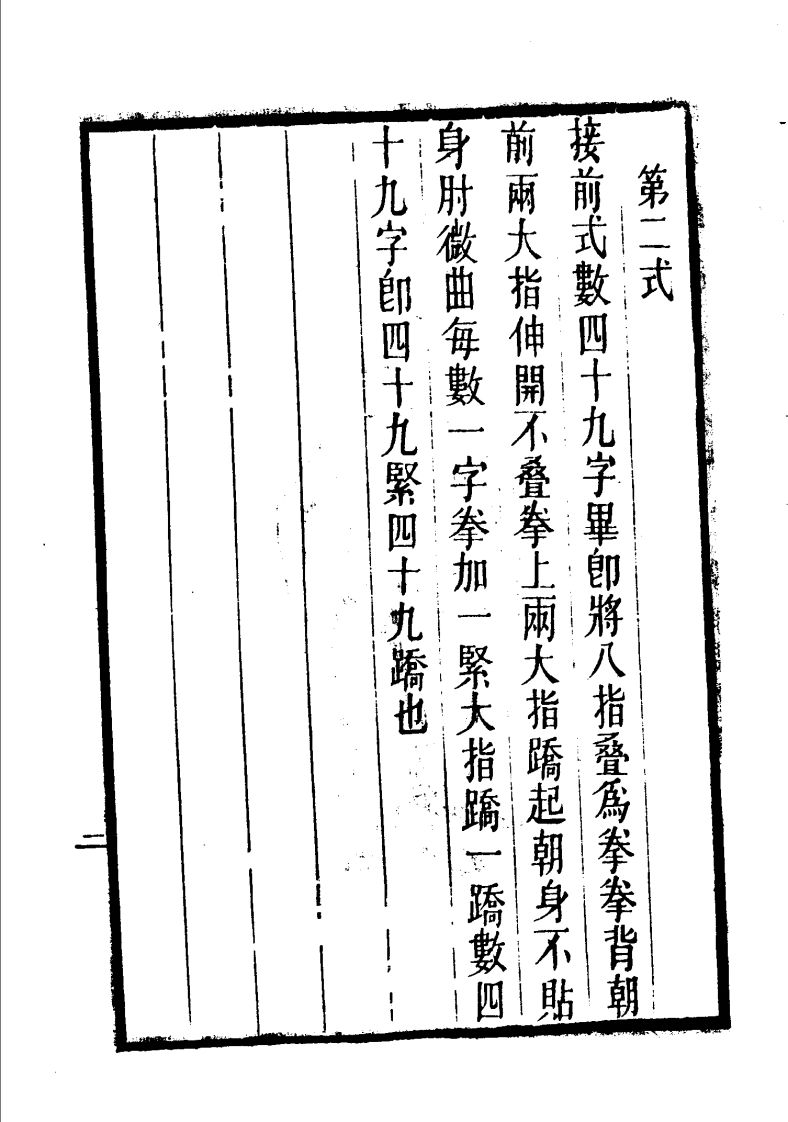 第二式
接前式數四十九字畢卽將八指疊爲拳拳背朝
前兩大指伸開不叠拳上兩大指蹻起朝身不貼
身肘微曲每數一字拳加一緊大指蹻一蹻數四
十九字卽四十九緊四十九蹻也
二